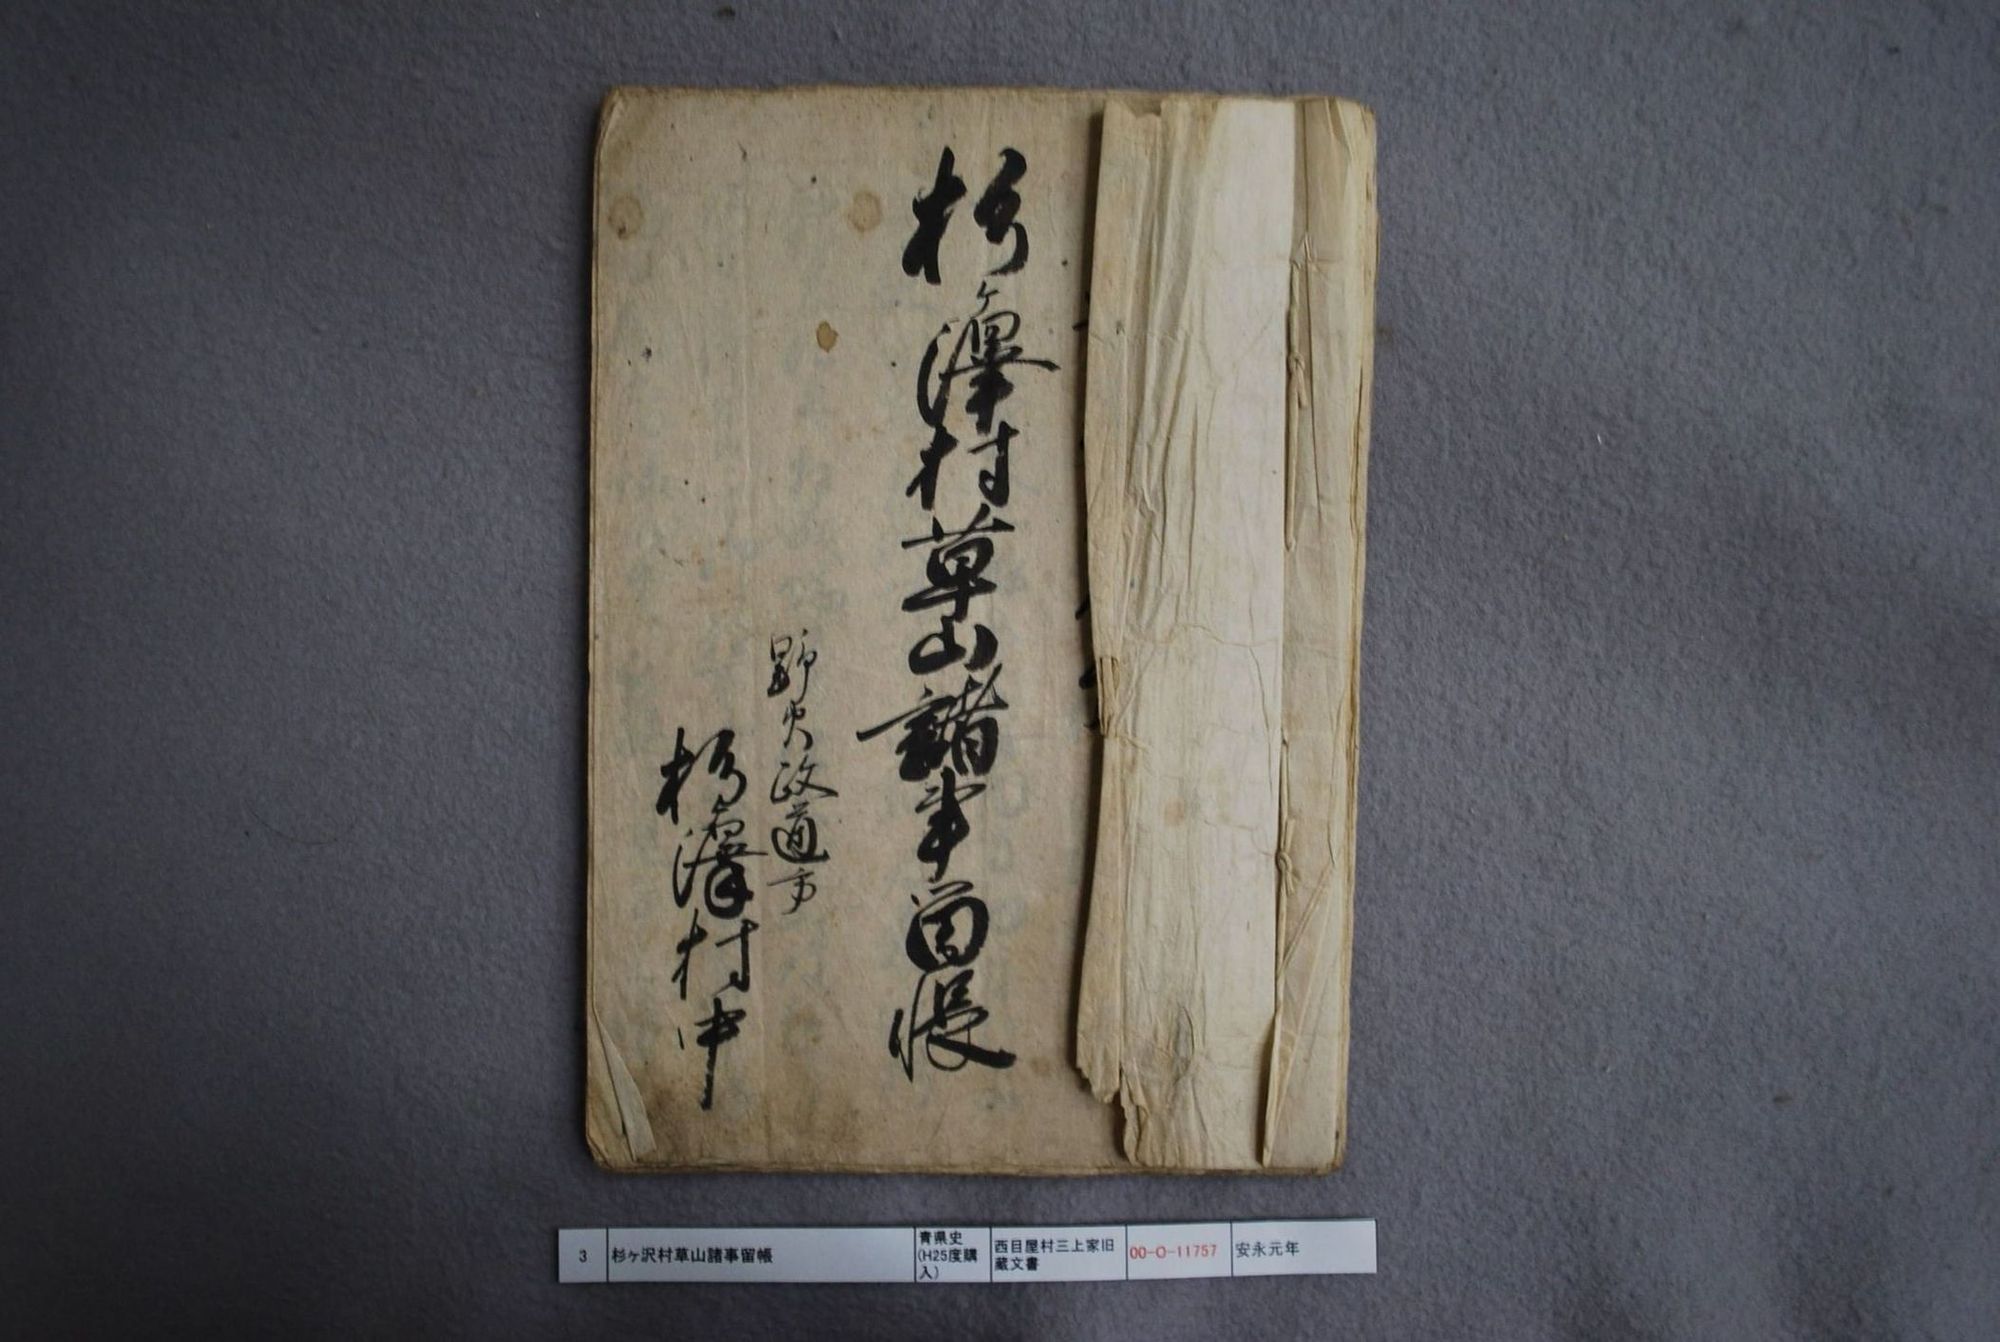 杉ヶ澤村草山諸事留帳
野火政道方
杉ヶ澤村中
3 杉ヶ沢村草山諸事留帳 青県史(H25度購入) 西目屋村三上家旧蔵文書 00-O-11757 安永元年